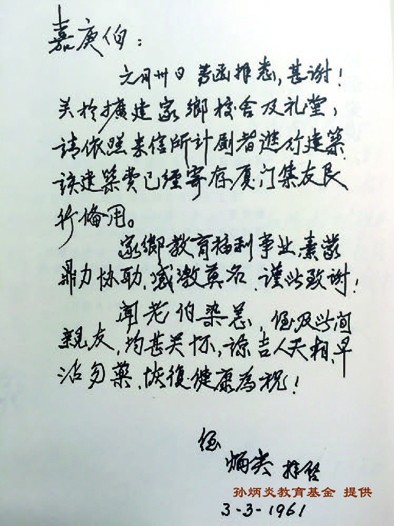 嘉庚伯：
元月卅日 芳函拜悉，甚谢！
关於擴建家鄉校舍及礼堂，
请依照来信所计劃者進行建築
该建築费已经寄存厦门集友艮
行俻用。
家鄉教育福利事业，素蒙
鼎力协助，感激莫名，谨此致谢！
闻老伯染恙，侄及此间
親友，均甚关怀，谅吉人天相，早
沾勿藥，恢復健康為祝！
侄
炳炎 拜啓
孙炳炎教育基金 提供
3-3-1961